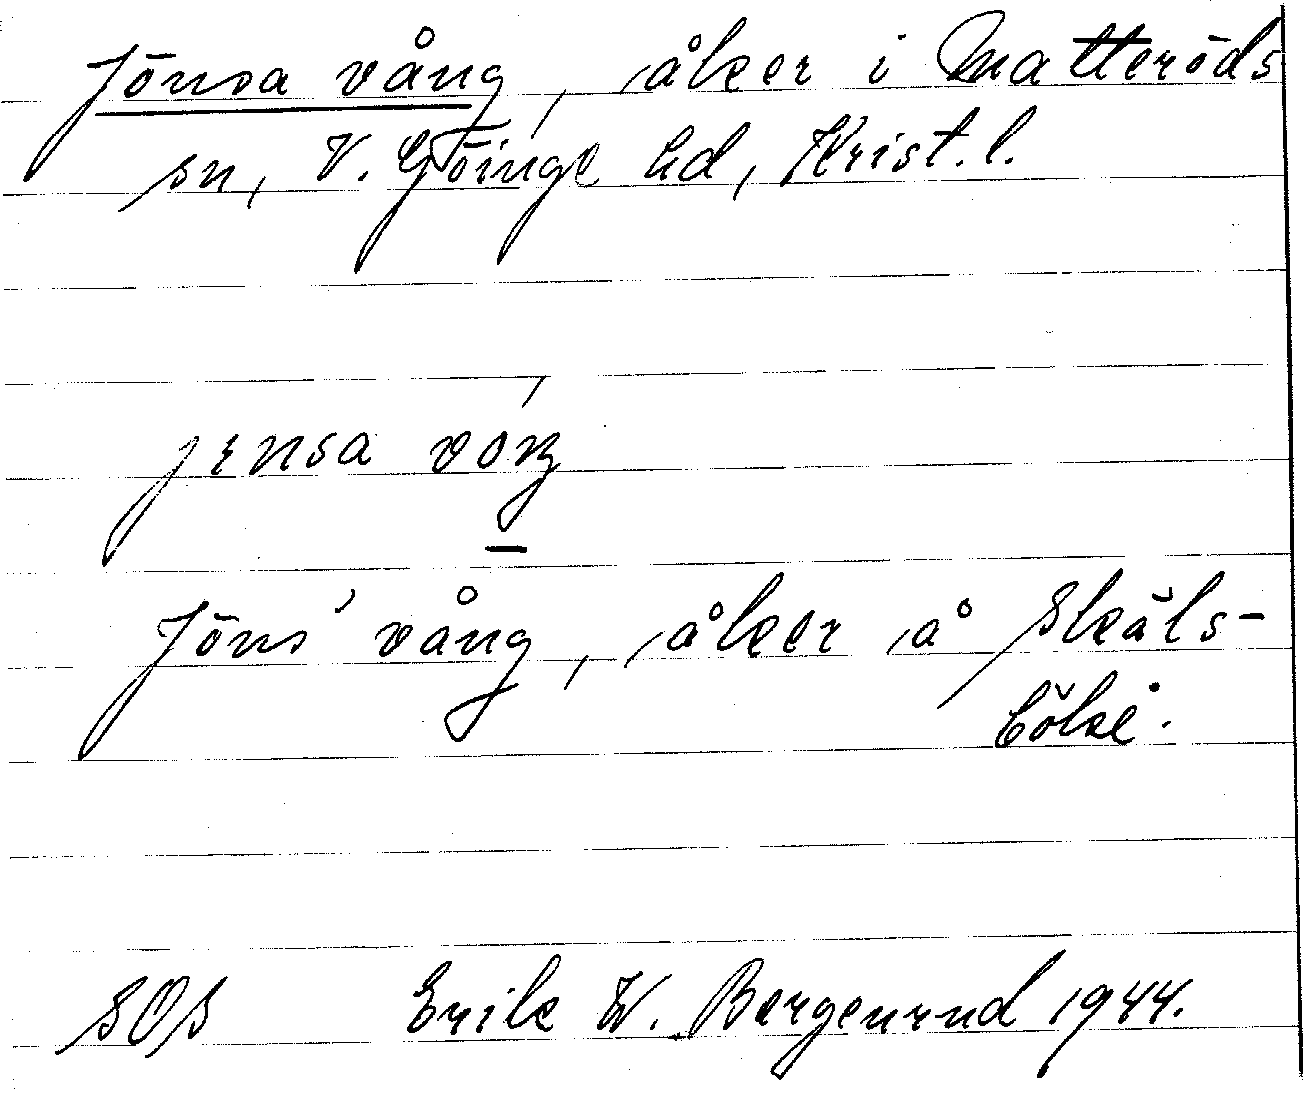 Jönsa vång, åker i Matteröds
sn, V. Göinge hd, Krist. l.
jɛnsa voŋ
Jöns' vång, åker å Skäls-
böke.
SOS Erik W. Bergenrud 1944.